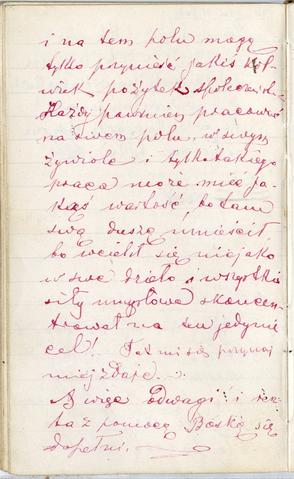 i na tem polu mogę
tylko przynieść jakiś kol
wiek pożytek społeczeńst.
Każdy powinien pracować
na swem polu, w swym
żywiole i tylko takiego
praca może mieć ja-
kąś wartość, bo tam
swą duszę umieścił
bo wcielił się niejako
w swe dzieło i wszystkie
siły umysłowe skoncen
trował na ten jedynie
cel! Tak mi się przynaj
mniej zdaje.
A więc odwagi! i resz
ta z pomocą Boską się
dopełni.